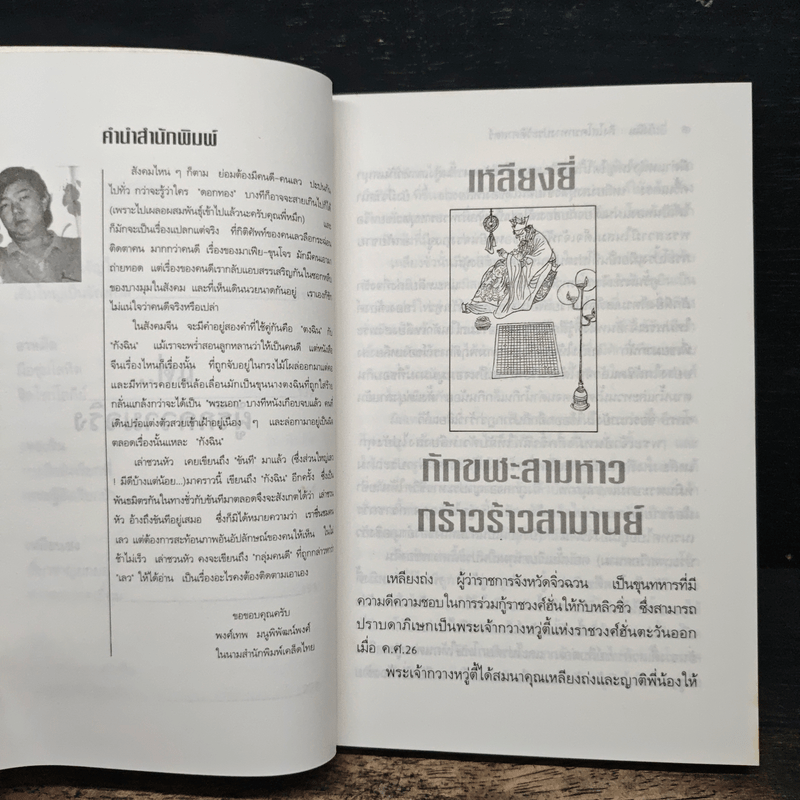 คำนำสำนักพิมพ์
สังคมไหน ๆ ก็ตาม ย่อมต้องมีคนดี-คนเลว ปะปนกัน
ไปทั่ว กว่าจะรู้ว่าใคร "ดอกทอง" บางทีก็อาจจะสายเกินไปก็ได้
(เพราะไปเผลอผสมพันธุ์เข้าไปแล้วนะครับคุณพี่หมึก) และ
ก็มักจะเป็นเรื่องแปลกแต่จริง ที่กิตติศัพท์ของคนเลวลือกระฉ่อน
ติดตาคน มากกว่าคนดี เรื่องของมาเฟีย-ขุนโจร มักมีคน
ถ่ายทอด แต่เรื่องของคนดีเรากลับแอบสรรเสริญกันในซอกหลืบ
ของบางมุมในสังคม และที่เห็นเดินนวยนาดกันอยู่ เราเองก็
ไม่แน่ใจว่าคนดีจริงหรือเปล่า
ในสังคมจีน จะมีคำอยู่สองคำที่ใช้คู่กันคือ "ตงฉิน" กับ
"กังฉิน" แม้เราจะพร่ำสอนลูกหลานว่าให้เป็นคนดี แต่หนัง
จีนเรื่องไหนก็เรื่องนั้น ที่ถูกจับอยู่ในกรงไม้โผล่ออกมาแต่
และมีทหารคอยเข็นล้อเลื่อนมักเป็นขุนนางตงฉินที่ถูกใส่ร้าย
กลั่นแกล้งกว่าจะได้เป็น "พระเอก" บางทีหนังเกือบจบแล้ว
เดินปร๋อแต่งตัวสวยเข้าเฝ้าอยู่เนือง ๆ และล่อกามาอยู่เป็นนิจ
ตลอดเรื่องนั้นแหละ "กังฉิน"
เล่าชวนหัว เคยเขียนถึง "ขันที" มาแล้ว (ซึ่งส่วนใหญ่
! มีดีบ้างแต่น้อย...) มาคราวนี้ เขียนถึง "กังฉิน" อีกครั้ง ซึ่งเป็น
พันธมิตรกันในทางชั่วกับขันทีมาตลอดจึงจะสังเกตได้ว่า เล่าชวน
หัว อ้างถึงขันทีอยู่เสมอ ซึ่งก็มิได้หมายความว่า เราชื่นชม
เลว แต่ต้องการสะท้อนภาพอันอัปลักษณ์ของคนให้เห็น
ช้าไม่เร็ว เล่าชวนหัว คงจะเขียนถึง "กลุ่มคนดี" ที่ถูกกล่าวหา
"เลว" ให้ได้อ่าน เป็นเรื่องอะไรคงต้องติดตามเอาเอง
ขอขอบคุณครับ
พงศ์เทพ มนูพิพัฒน์พงศ์
ในนามสำนักพิมพ์เคล็ดไทย
เหลียงยี่
กักขฬะสามหาว
กร้าวร้าวสามานย์
เหลียงถ่ง ผู้ว่าราชการจังหวัดจิ่วฉวน เป็นขุนทหารที่มี
ความดีความชอบในการร่วมกู้ราชวงศ์ฮั่นให้กับหลิวซิ่ว ซึ่งสามารถ
ปราบดาภิเษกเป็นพระเจ้ากวางหวู่ตี้แห่งราชวงศ์ฮั่นตะวันออก
เมื่อ ค.ศ.26
พระเจ้ากวางหวู่ตี้ได้สมนาคุณเหลียงถ่งและญาติพี่น้องให้